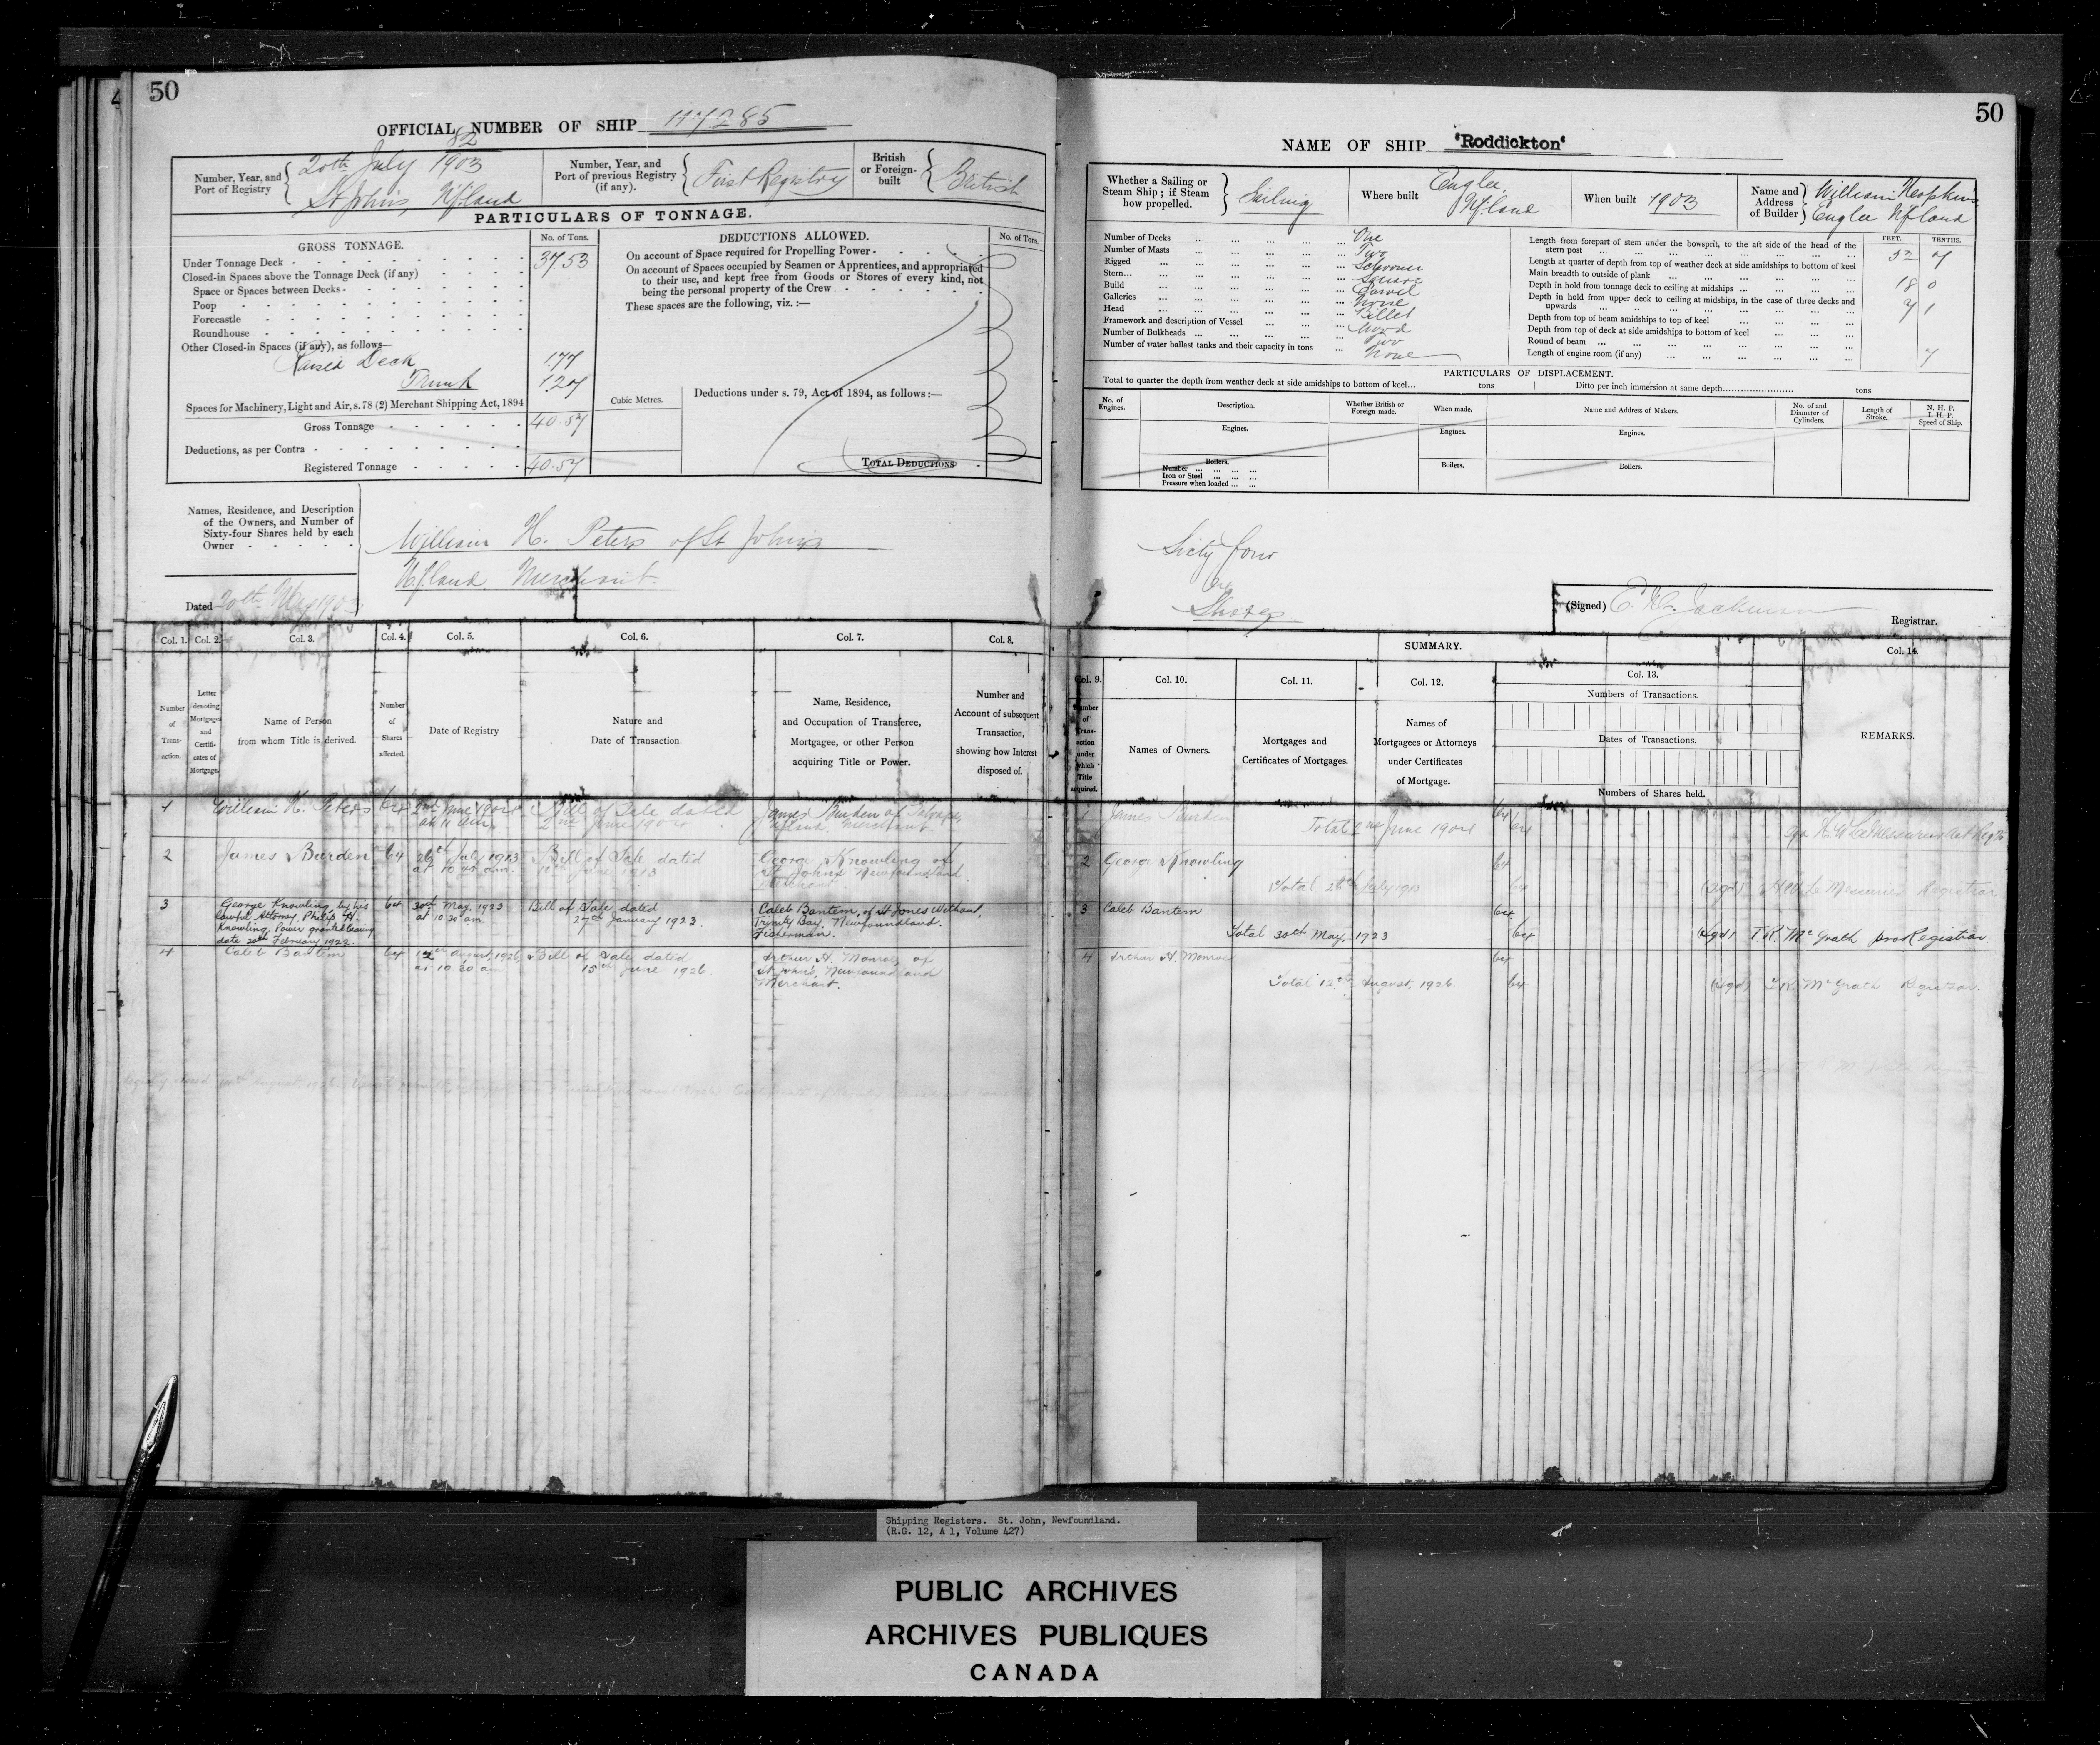 50
OFFICIAL NUMBER OF SHIP 117285
Number, Year, and Port of Registry
82
20th July 1903
St Johns, Nfland
Number, Year, and Port of previous Registry (if any).
First Registry
British or Foreign-built
British
PARTICULARS OF TONNAGE.
GROSS TONNAGE.
No. of Tons.
Under Tonnage Deck - 37 53
Closed-in Spaces above the Tonnage Deck (if any)
Space or Spaces between Decks
Poop
Forecastle
Roundhouse
Other Closed-in Spaces (if any), as follows—
Raised Deck 1.77
Trunk 1.27
Spaces for Machinery, Light and Air, s. 78 (2) Merchant Shipping Act, 1894
Gross Tonnage - 40.57
Deductions, as per Contra
Registered Tonnage - 40.57
Cubic Metres.
DEDUCTIONS ALLOWED.
No. of Tons.
On account of Space required for Propelling Power
On account of Spaces occupied by Seamen or Apprentices, and appropriated
to their use, and kept free from Goods or Stores of every kind, not
being the personal property of the Crew
These spaces are the following, viz. :—
Deductions under s. 79, Act of 1894, as follows :—
TOTAL DEDUCTIONS
Names, Residence, and Description
of the Owners, and Number of
Sixty-four Shares held by each
Owner
William H. Peters of St Johns
Nfland Merchant
Dated 20th 1903
Col. 1. Col. 2. Col. 3. Col. 4. Col. 5. Col. 6. Col. 7. Col. 8.
Number of Transaction.
Letter denoting Mortgages and Certificates of Mortgage.
Name of Person from whom Title is derived.
Number of Shares affected.
Date of Registry
Nature and Date of Transaction.
Name, Residence, and Occupation of Transferee, Mortgagee, or other Person acquiring Title or Power.
Number and Account of subsequent Transaction, showing how Interest disposed of.
1 William H. Peters 64 2nd June 1904 Bill of Sale dated James Burden of
at 11 am 2nd June 1904 Nfland, Merchant.
2 James Burden 64 26th July 1913 Bill of Sale dated George Knowling of
at 10 40 am. 10th June 1913 St Johns Newfoundland
Merchant.
3 George Knowling by his 64 30th May, 1923 Bill of Sale dated Caleb Bantem, of St Jones Without,
lawful Attorney Philip H. at 10 30 am. 27th January 1923 Trinity Bay. Newfoundland.
Knowling Power granted bearing Fisherman.
date 20th February 1922.
4 Caleb Bantem 64 12th August, 1926 Bill of Sale dated Arthur H. Monroe, of
at 10 30 am 15th June 1926. St John's, Newfoundland
Merchant.
50
NAME OF SHIP "Roddickton"
Whether a Sailing or Steam Ship; if Steam how propelled.
Sailing
Where built
Englee,
Nfland
When built 1903
Name and Address of Builder
William Hopkins
Englee Nfland
Number of Decks ... One
Number of Masts ... Two
Rigged ... Schooner
Stern... Square
Build ... Carvel
Galleries ... None
Head ... Billet
Framework and description of Vessel ... Wood
Number of Bulkheads ... Two
Number of water ballast tanks and their capacity in tons ... None
FEET. TENTHS.
Length from forepart of stem under the bowsprit, to the aft side of the head of the
stern post ... 52 7
Length at quarter of depth from top of weather deck at side amidships to bottom of keel
Main breadth to outside of plank ... 18 0
Depth in hold from tonnage deck to ceiling at midships ... 7 1
Depth in hold from upper deck to ceiling at midships, in the case of three decks and
upwards
Depth from top of beam amidships to top of keel
Depth from top of deck at side amidships to bottom of keel
Round of beam ... 7
Length of engine room (if any)
PARTICULARS OF DISPLACEMENT.
Total to quarter the depth from weather deck at side amidships to bottom of keel... tons
Ditto per inch immersion at same depth... tons
No. of Engines.
Description.
Whether British or Foreign made.
When made.
Name and Address of Makers.
No. of and Diameter of Cylinders.
Length of Stroke.
N. H. P.
I. H. P.
Speed of Ship.
Engines. Engines. Engines.
Boilers. Boilers. Boilers.
Number
Iron or Steel
Pressure when loaded
Sixty four
Shares
(Signed)
Registrar.
SUMMARY.
Col. 9. Col. 10. Col. 11. Col. 12. Col. 13. Col. 14.
Number of Transaction under which Title acquired.
Names of Owners.
Mortgages and Certificates of Mortgages.
Names of Mortgagees or Attorneys under Certificates of Mortgage.
Numbers of Transactions.
Dates of Transactions.
Numbers of Shares held.
REMARKS.
1 James Burden 64
Total 2nd June 1904 64
2 George Knowling 64
Total 26th July 1913 64 (sgd) H W Le Messurier Registrar
3 Caleb Bantem 64
Total 30th May, 1923 64 (sgd) T. R. McGrath pro Registrar.
4 Arthur H. Monroe 64
Total 12th August, 1926 64 (sgd) T.R. McGrath Registrar.
Shipping Registers. St. John, Newfoundland.
(R.G. 12, A 1, Volume 427)
PUBLIC ARCHIVES
ARCHIVES PUBLIQUES
CANADA